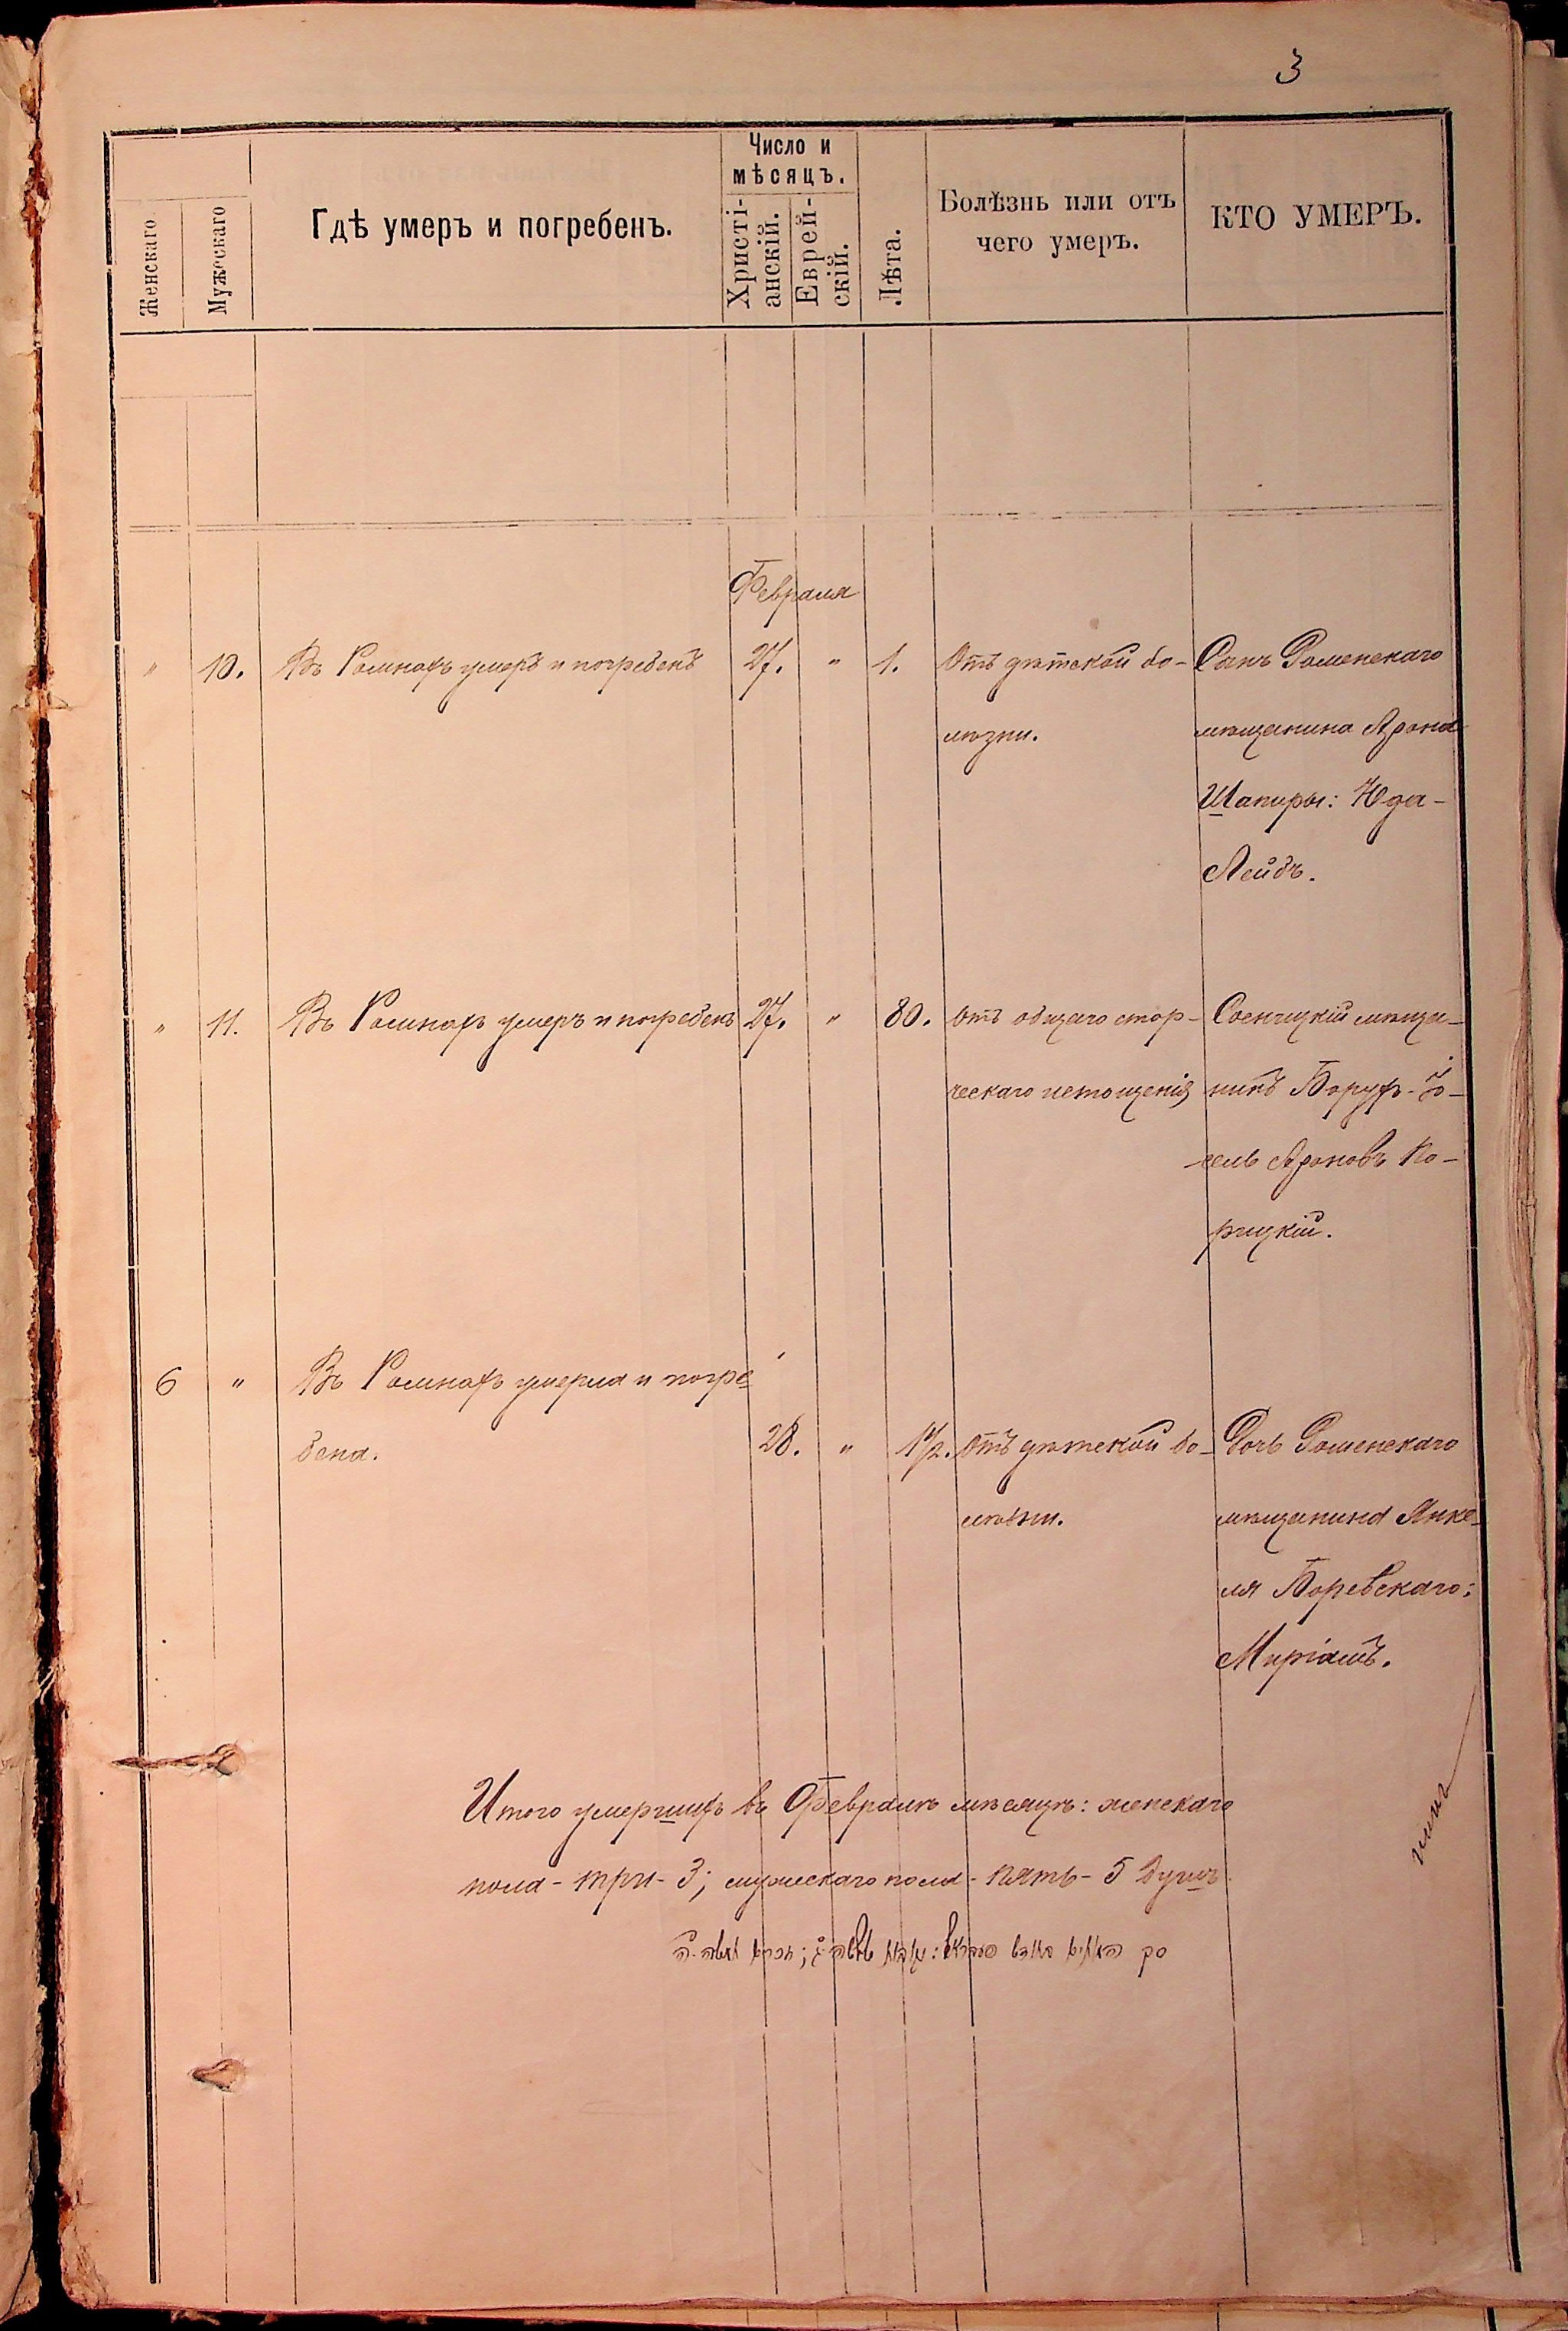 3
Число и
мѣсяцъ.
Женскаго
Мужескаго
Гдѣ умеръ и погребенъ.
Христі-
анскій.
Еврей-
скій.
Лѣта.
Болѣзнь или отъ
чего умеръ.
КТО УМЕРЪ.
Февраля
" 10. Въ Ромнахъ умеръ и погребенъ 27. " 1. Отъ дѣтской бо- Сынъ Роменскаго
лѣзни. мѣщанина Арона
Шапиры: Юда-
Лейбъ.
" 11. Въ Ромнахъ умеръ и погребенъ 27. " 80. отъ общаго стар- Сосницкій мѣща-
ческаго истощенія нинъ Борухъ-
Ароновъ Ко-
рицкій.
6 " Въ Ромнахъ умерла и погре
бена. 28. " 1½. отъ дѣтской бо- Дочь Роменскаго
лѣзни. мѣщанина Янке-
ля Боревскаго:
Миріамъ.
Итого умершихъ въ Февралѣ мѣсяцѣ: женскаго
пола - три - 3; мужескаго пола - пять - 5 душъ.